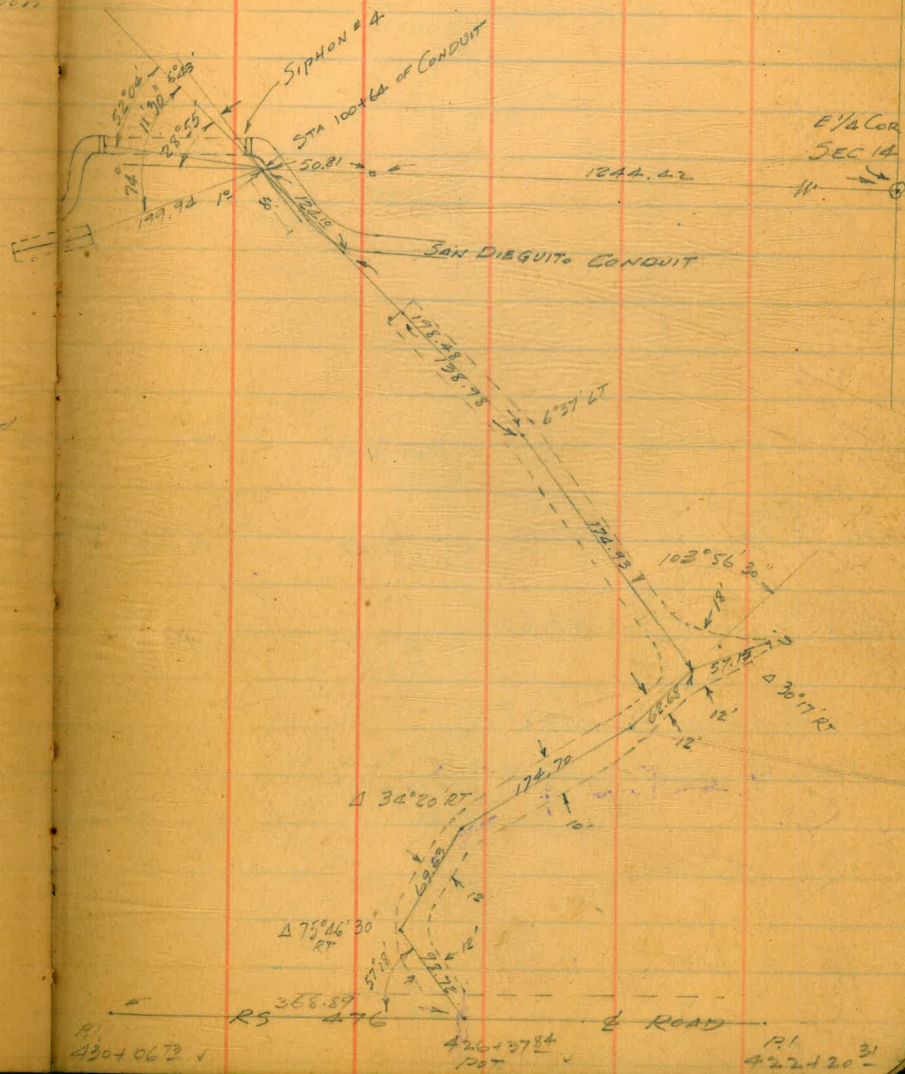 SIPHON # 4
STA 100+64 OF CONDUIT
52°04'
6°43'
11'30"
28°55'
74°
199.94
1°
50.81
1244.42
E 1/4 COR
SEC 14
SAN DIEGUITO CONDUIT
198.48
138.98
6°37' LT
174.93
103°56'30"
18'
57.15
Δ 30°17' RT
62.68
12'
12'
174.70
10'
Δ 34°20' RT
12'
Δ 75°46'30"
RT
12'
57°18'
368.89
RS 476
℄ ROAD
P.I.
430+06.73 ✓
426+37.84 ✓
POT
P.I.
422+20.31